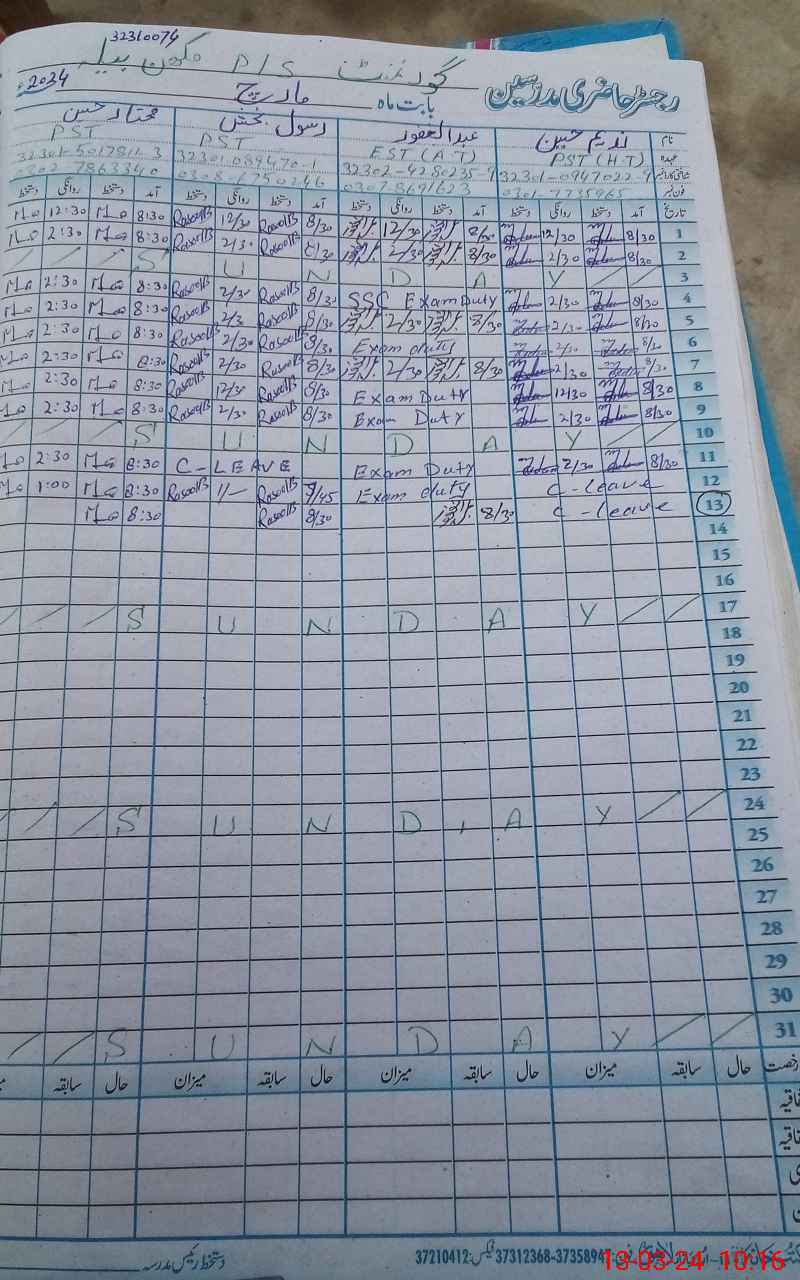 32310074
گورنمنٹ P/S مکھن بیلہ
رجسٹر حاضری مدرسین بابت ماہ مارچ 2024ء
نام ندیم حسین عبدالغفور رسول بخش مختار حسین
عہدہ PST (H.T) EST (A.T) PST PST
شناختی کارڈ نمبر 32301-0947022-9 32302-4280235-9 32301-089470-1 32301-5017811-3
فون نمبر 0301-7735965 0307-8691623 0308-6750246 0302-7863340
تاریخ آمد دستخط روانگی دستخط آمد دستخط روانگی دستخط آمد دستخط روانگی دستخط آمد دستخط روانگی دستخط
1 8/30 12/30 8/30 12/30 8/30 RasoolB 12/30 RasoolB 8:30 12:30
2 8/30 2/30 8/30 2/30 8/30 RasoolB 2/30 RasoolB 8:30 2:30
3 S U N D A Y
4 8/30 2/30 SSC Exam Duty 8/30 RasoolB 2/30 RasoolB 8:30 2:30
5 8/30 2/30 8/30 2/30 8/30 RasoolB 2/3 RasoolB 8:30 2:30
6 8/30 2/30 Exam duty 8/30 RasoolB 2/30 RasoolB 8:30 2:30
7 8/30 2/30 8/30 2/30 8/30 RasoolB 2/30 RasoolB 8:30 2:30
8 8/30 12/30 Exam Duty 8/30 RasoolB 12/30 RasoolB 8:30 2:30
9 8/30 2/30 Exam Duty 8/30 RasoolB 2/30 RasoolB 8:30 2:30
10 S U N D A Y
11 8/30 2/30 Exam Duty C-LEAVE 8:30 2:30
12 C-leave Exam duty 7/45 RasoolB 1/- RasoolB 8:30 1:00
13 C-leave 8/30 8/30 RasoolB 8:30
14
15
16
17 S U N D A Y
18
19
20
21
22
23
24 S U N D A Y
25
26
27
28
29
30
31 S U N D A Y
رخصت حال سابقہ میزان حال سابقہ میزان حال سابقہ میزان حال سابقہ
دستخط رئیس مدرسہ
37210412 فیکس: 37312368-3735894
13-03-24 10:16